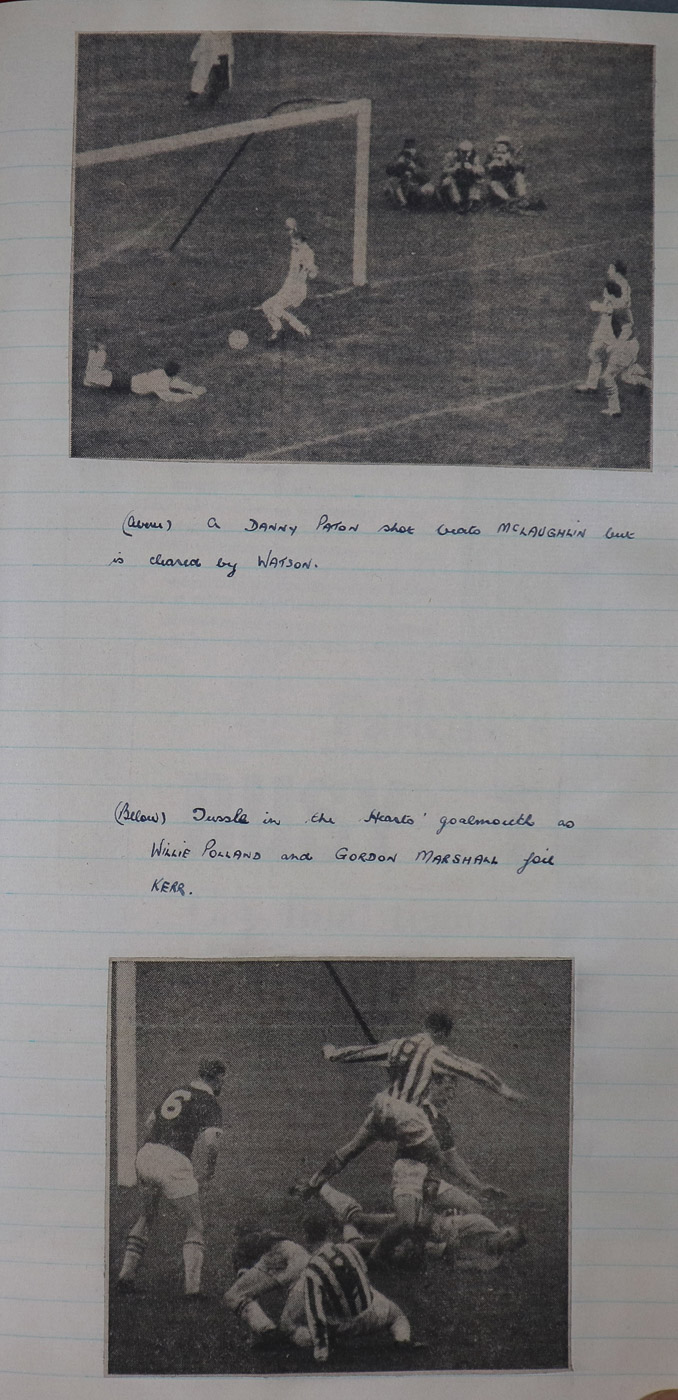 (Above) A DANNY PATON shot beats McLAUGHLIN but
is cleared by WATSON.
(Below) Tussle in the Hearts' goalmouth as
WILLIE POLLAND and GORDON MARSHALL foil
KERR.
6